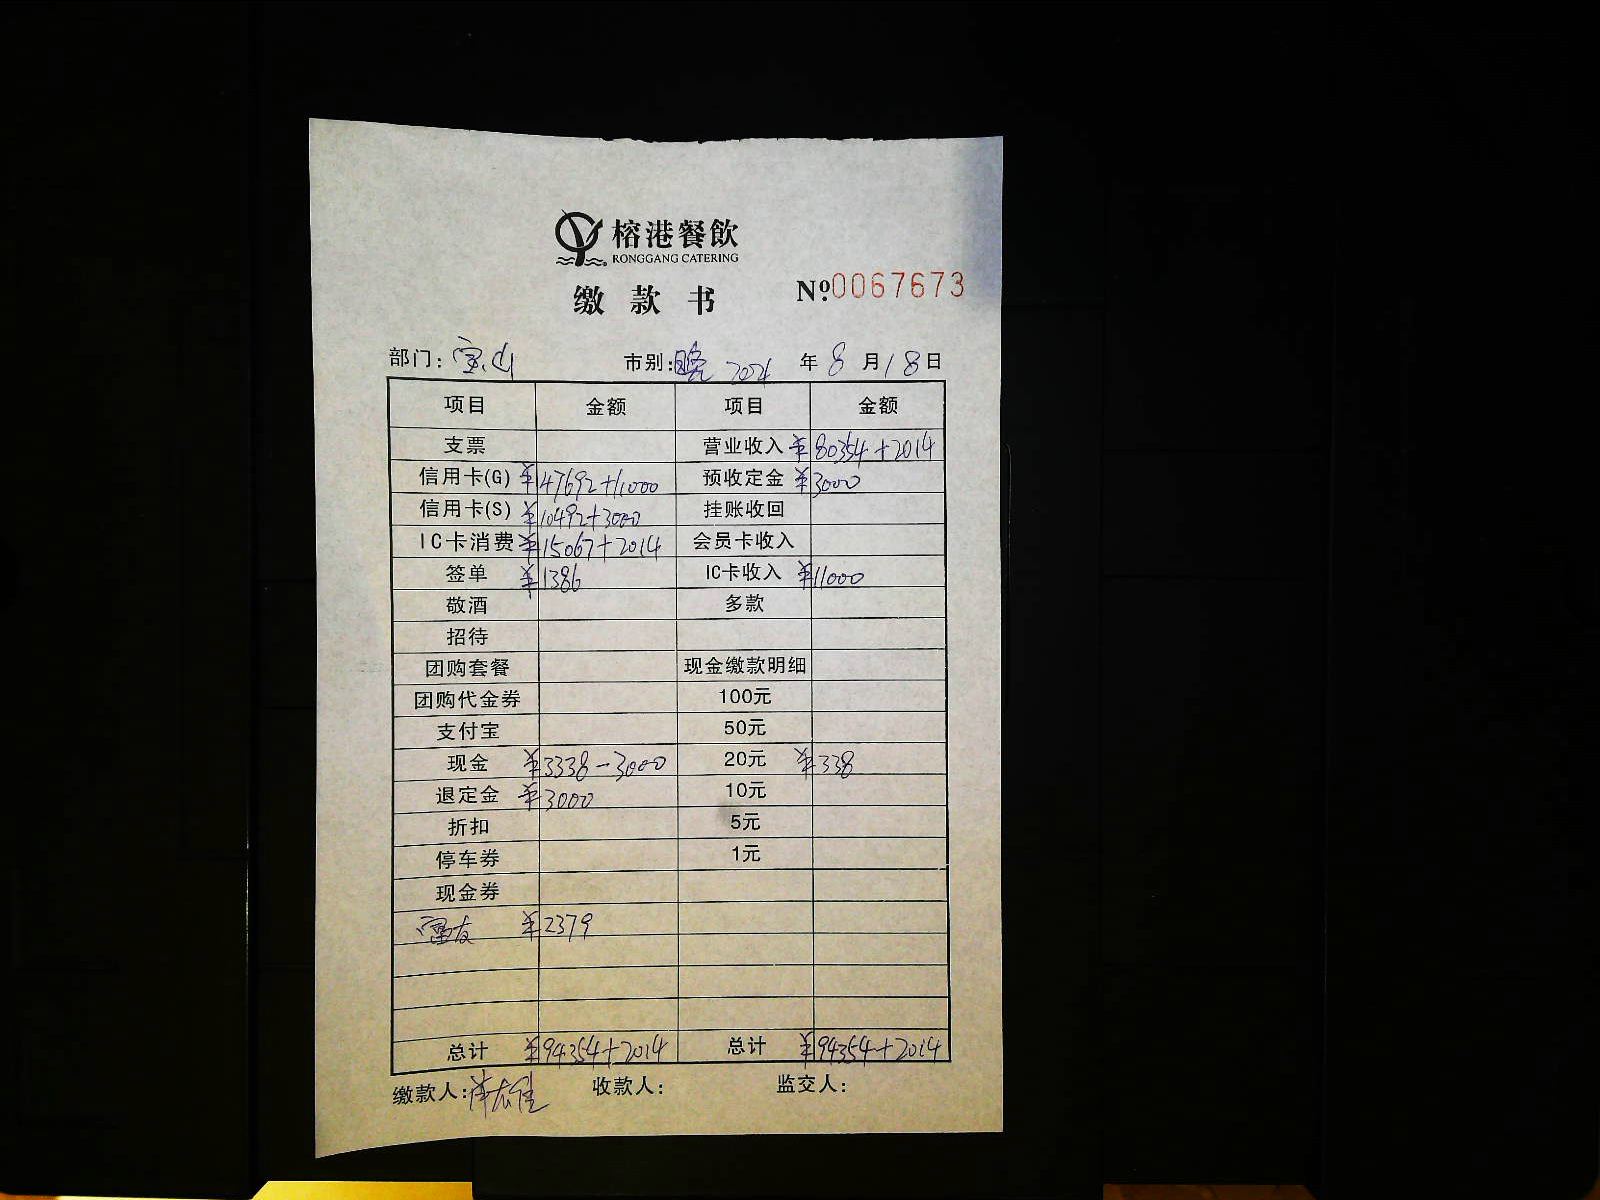 榕港餐飲
RONGGANG CATERING
缴款书 Nº.0067673
部门: 宝山 市别: 2024 年 8 月 18 日
项目 金额 项目 金额
支票 营业收入 ¥80354+2014
信用卡(G) ¥47692+11000 预收定金 ¥3000
信用卡(S) ¥10492+3000 挂账收回
IC卡消费 ¥15067+2014 会员卡收入
签单 ¥1386 IC卡收入 ¥11000
敬酒 多款
招待
团购套餐 现金缴款明细
团购代金券 100元
支付宝 50元
现金 ¥3338-3000 20元 ¥338
退定金 ¥3000 10元
折扣 5元
停车券 1元
现金券
¥2379
总计 ¥94354+2014 总计 ¥94354+2014
缴款人: 收款人: 监交人: